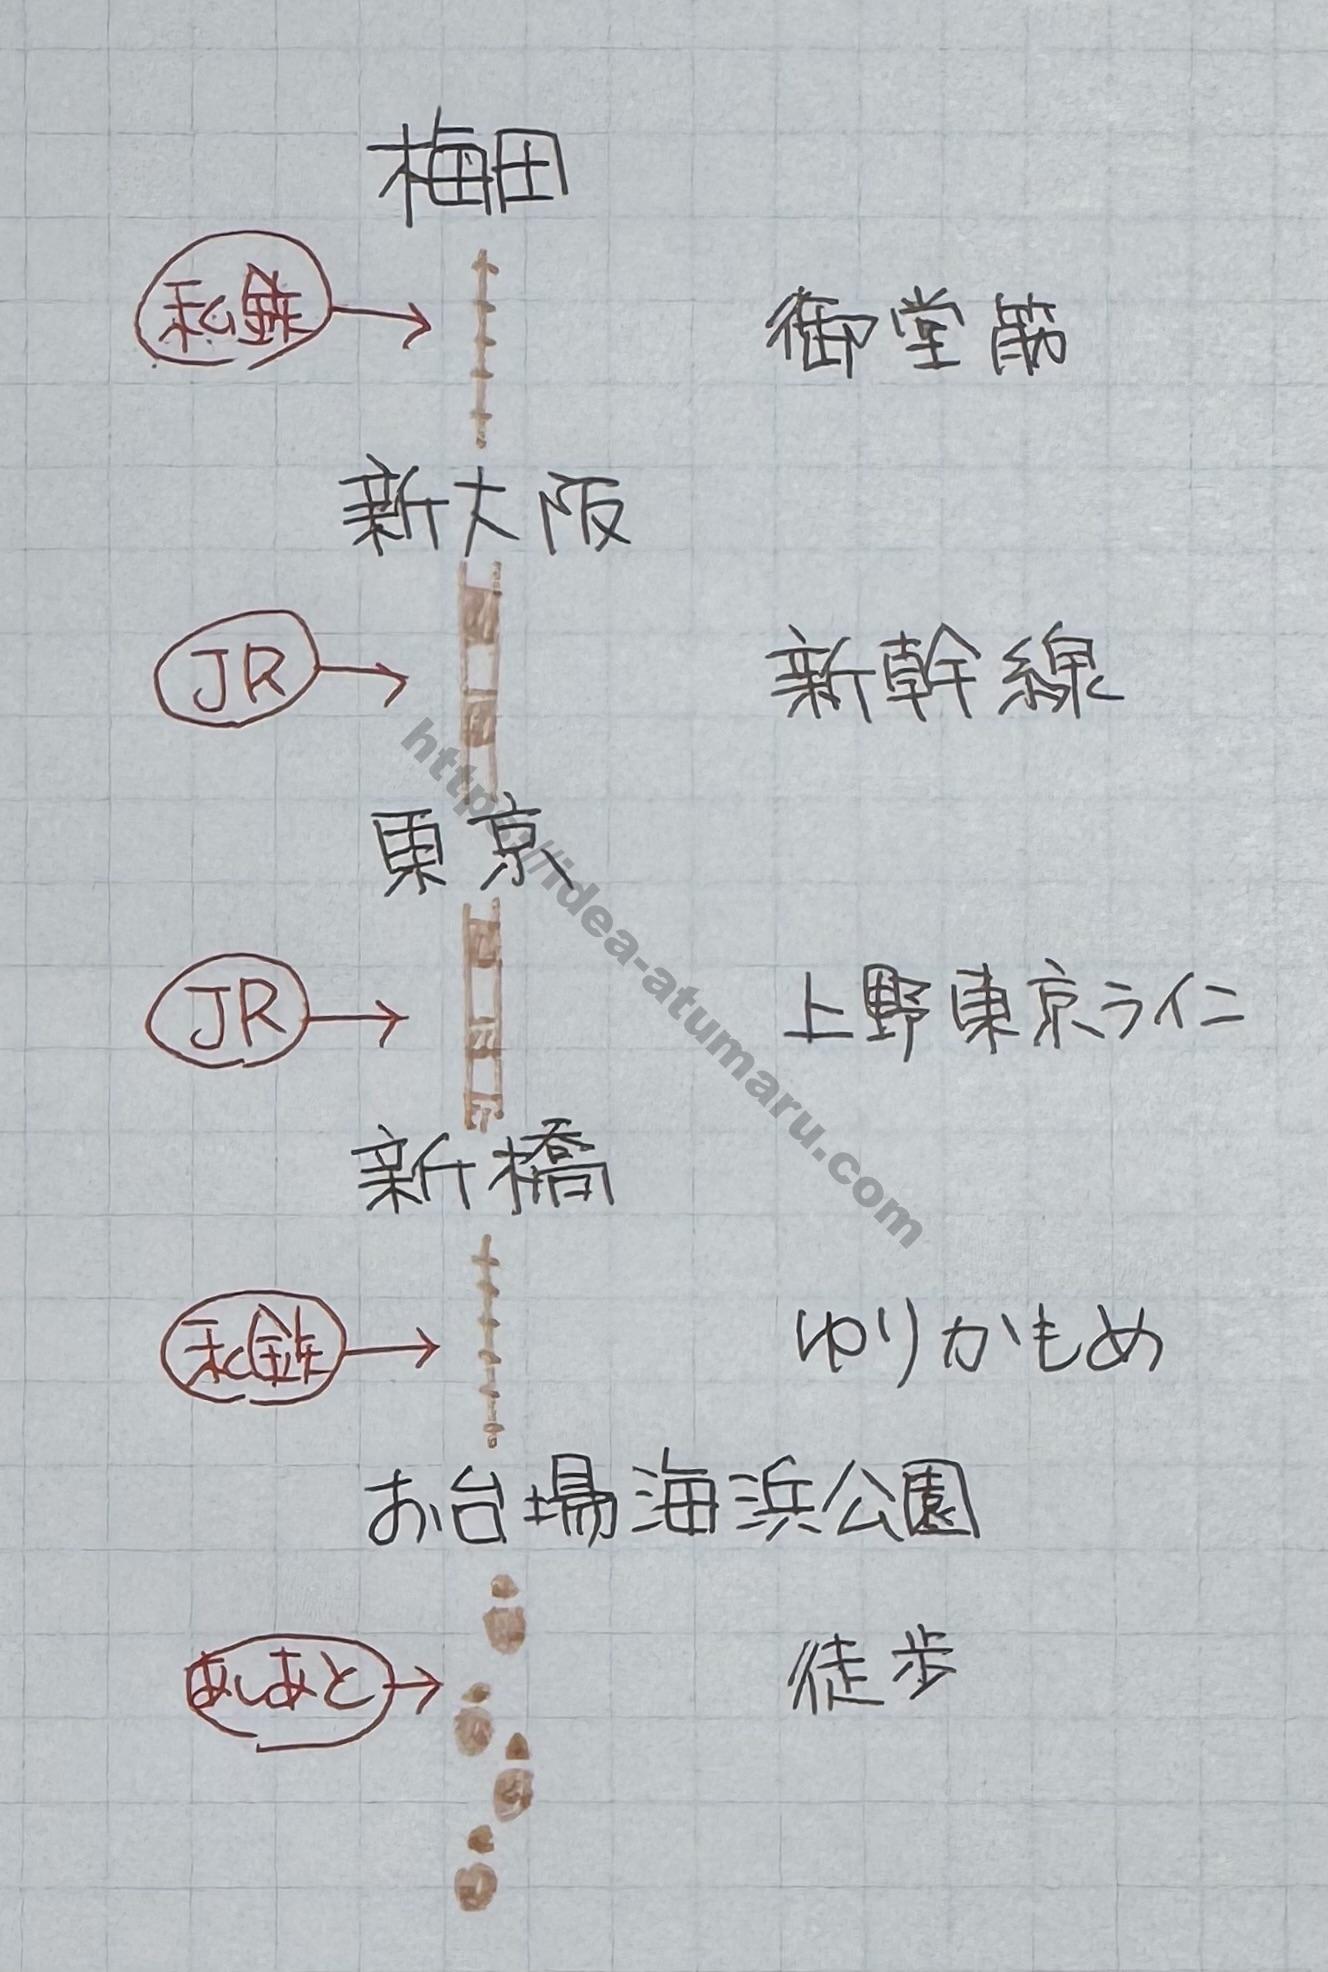 梅田
私鉄
御堂筋
新大阪
JR
新幹線
東京
JR
上野東京ライン
新橋
私鉄
ゆりかもめ
お台場海浜公園
あしあと
徒歩
http://idea-atumaru.com